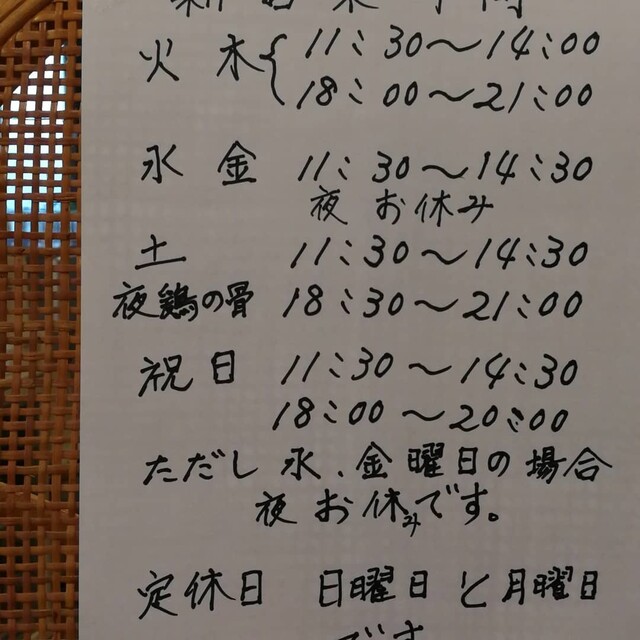 火 木 { 11:30～14:00
18:00～21:00
水 金 11:30～14:30
夜 お休み
土 11:30～14:30
夜鶏の骨 18:30～21:00
祝日 11:30～14:30
18:00～20:00
ただし 水、金曜日の場合
夜 お休みです。
定休日 日曜日と月曜日
です